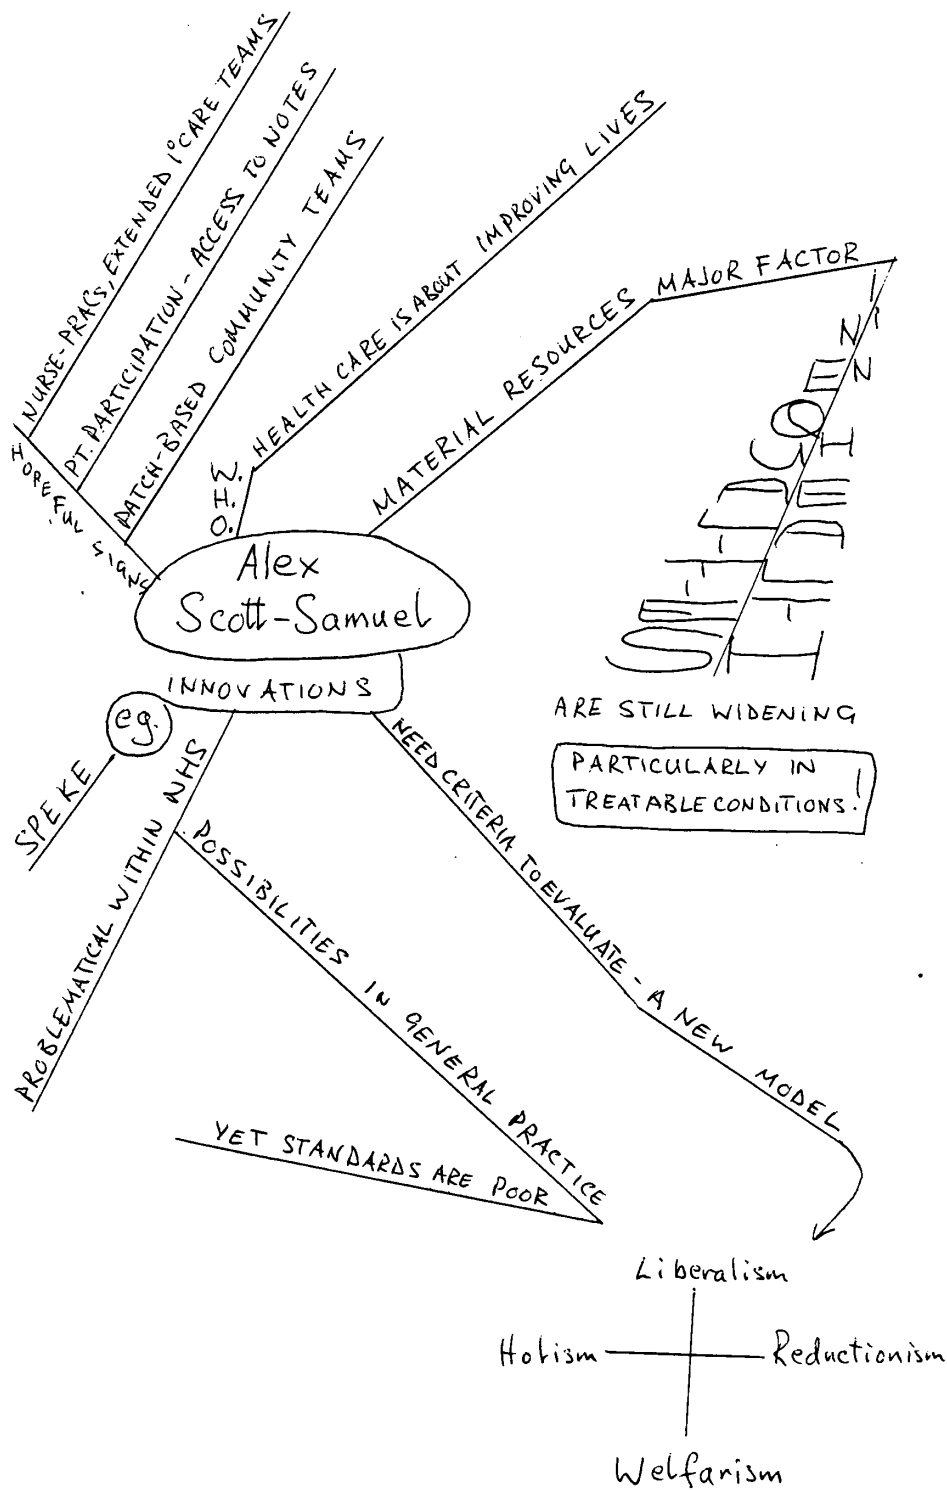 NURSE-PRACS, EXTENDED 1° CARE TEAMS
PT. PARTICIPATION - ACCESS TO NOTES
PATCH-BASED COMMUNITY TEAMS
HOPEFUL SIGNS
W.H.O.
HEALTH CARE IS ABOUT IMPROVING LIVES
MATERIAL RESOURCES
MAJOR FACTOR
INEQUALITIES
IN HEALTH
ARE STILL WIDENING
PARTICULARLY IN
TREATABLE CONDITIONS!
Alex
Scott-Samuel
INNOVATIONS
eg.
SPEKE
PROBLEMATICAL WITHIN NHS
POSSIBILITIES IN GENERAL PRACTICE
YET STANDARDS ARE POOR
NEED CRITERIA TO EVALUATE - A NEW MODEL
Liberalism
Holism
Reductionism
Welfarism